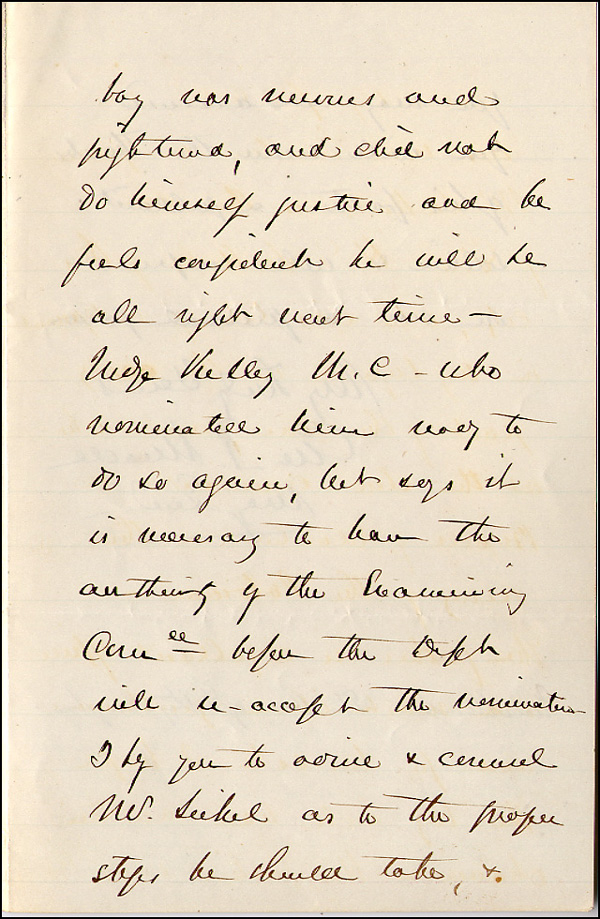 boy was nervous and
frightened, and did not
do himself justice and he
feels confident he will be
all right next time —
Judge Kelley M.C - who
nominated him ready to
do so again, but says it
is necessary to have the
authority of the Examining
Comee before the Dept
will re-accept the nomination
I beg you to advise & counsel
Mr. Seikel as to the proper
steps he should take, &.